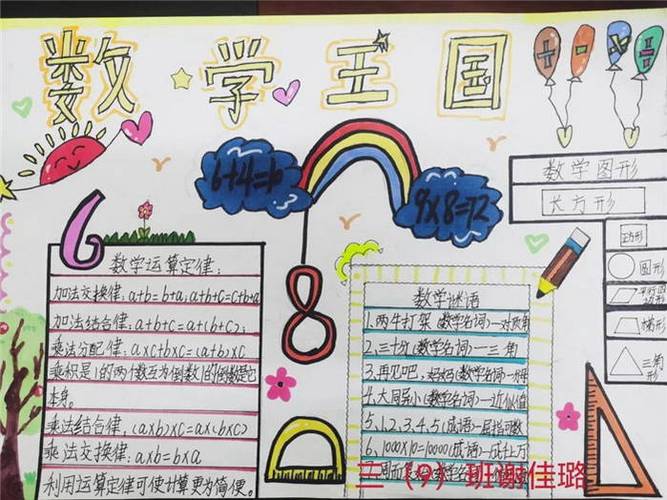 数学王国
6+4=10
9×8=72
数学图形
长方形
正方形
圆形
平行四边形
梯形
三角形
6
8
数学运算定律:
加法交换律:a+b=b+a;a+b+c=c+b+a
加法结合律:a+b+c=a+(b+c);
乘法分配律:a×c+b×c=(a+b)×c
乘积是1的两个数互为倒数1的倒数是它
本身。
乘法结合律,(a×b)×c=a×(b×c)
乘法交换律:a×b=b×a
利用运算定律可使计算更为简便。
数学谜语
1.两牛打架(数学名词)—对顶角
2.三十分(数学名词)—三角
3.再见吧,妈妈(数学名词)—
4.大同小异(数学名词)—近似值
5.1.2.3.4.5(成语)—屈指可数
6.1000×10=10000(成语)—成千上万
7.周而
三（9）班谢佳璐